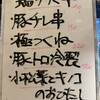 豚チレ串
極つくね
豚トロ冷製
小松菜とキノコ
のおひたし